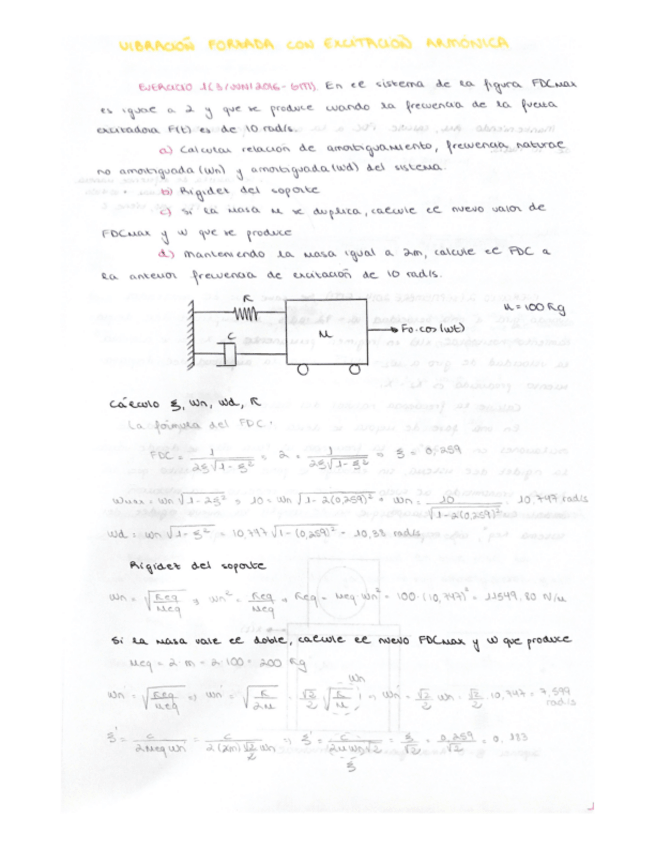 VIBRACIÓN FORZADA CON EXCITACIÓN ARMÓNICA
EJERCICIO 1 (3/JUNI 2016-GITI). En el sistema de la figura FDCmax
es igual a 2 y que se produce cuando la frecuencia de la fuerza
excitadora F(t) es de 10 rad/s.
a) Calcular relación de amortiguamiento, frecuencia natural
no amortiguada (wn) y amortiguada (wd) del sistema.
b) Rigidez del soporte
c) Si la masa M se duplica, calcule el nuevo valor de
FDCmax y w que se produce
d) Manteniendo la masa igual a 2m, calcule el FDC a
la anterior frecuencia de excitación de 10 rad/s.
K
C
M
Fo·cos(wt)
M = 100 Kg
Cálculo ξ, wn, wd, K
La fórmula del FDC:
FDC = 1/(2ξ√(1-ξ²)) ⇒ 2 = 1/(2ξ√(1-ξ²)) ⇒ ξ = 0,259
wmax = wn √(1-2ξ²) ⇒ 10 = wn √(1-2(0,259)²) ⇒ wn = 10/√(1-2(0,259)²) = 10,747 rad/s
wd = wn √(1-ξ²) = 10,747 √(1-(0,259)²) = 10,38 rad/s
Rigidez del soporte
wn = √(Keq/Meq) ⇒ wn² = Keq/Meq ⇒ Keq = Meq wn² = 100·(10,747)² = 11549,80 N/m
Si la masa vale el doble, calcule el nuevo FDCmax y w que produce
Meq = 2·m = 2·100 = 200 Kg
wn
wn' = √(Keq/Meq) ⇒ wn' = √(K/2M) = √2/2 √(K/M) ⇒ wn' = √2/2 wn = √2/2 · 10,747 = 7,599 rad/s
ξ' = c/(2Meq wn) = c/(2(2m) √2/2 wn) ⇒ ξ' = c/(2M wn √2) = ξ/√2 = 0,259/√2 = 0,183
ξ